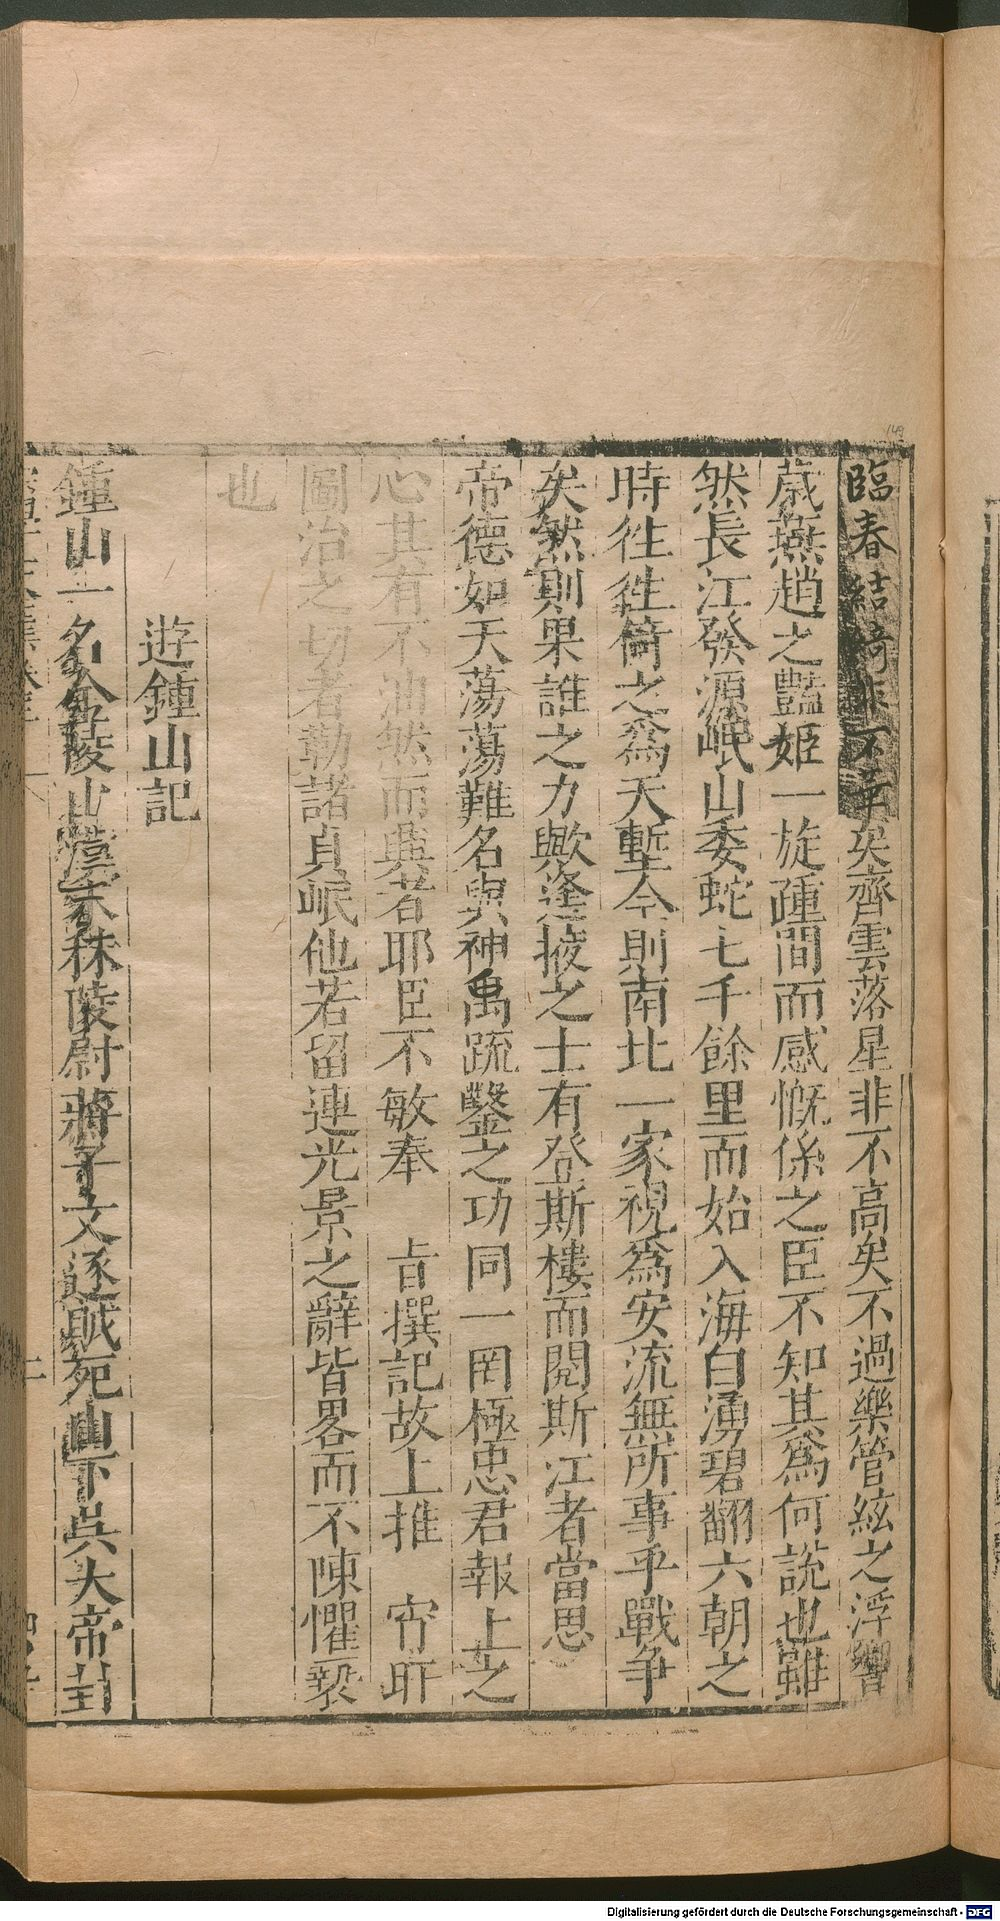 臨春結綺非不華矣齊雲落星非不高矣不過樂管絃之淫響
藏燕趙之豔姬一旋踵間而感慨係之臣不知其為何說也雖
然長江發源岷山委蛇七千餘里而始入海白湧碧翻六朝之
時徃徃倚之為天塹今則南北一家視為安流無所事乎戰争
矣然則果誰之力歟逢掖之士有登斯樓而閱斯江者當思
帝德如天蕩蕩難名與神禹疏鑿之功同一罔極忠君報上之
心其有不油然而興者耶臣不敏奉　旨撰記故上推　宵旰
圖治之切者勒諸貞珉他若留連光景之辭皆畧而不陳懼褻
也
遊鍾山記
鍾山一名金陵山漢末秣陵尉蔣子文逐賊死山下吳大帝封
Digitalisierung gefördert durch die Deutsche Forschungsgemeinschaft - DFG